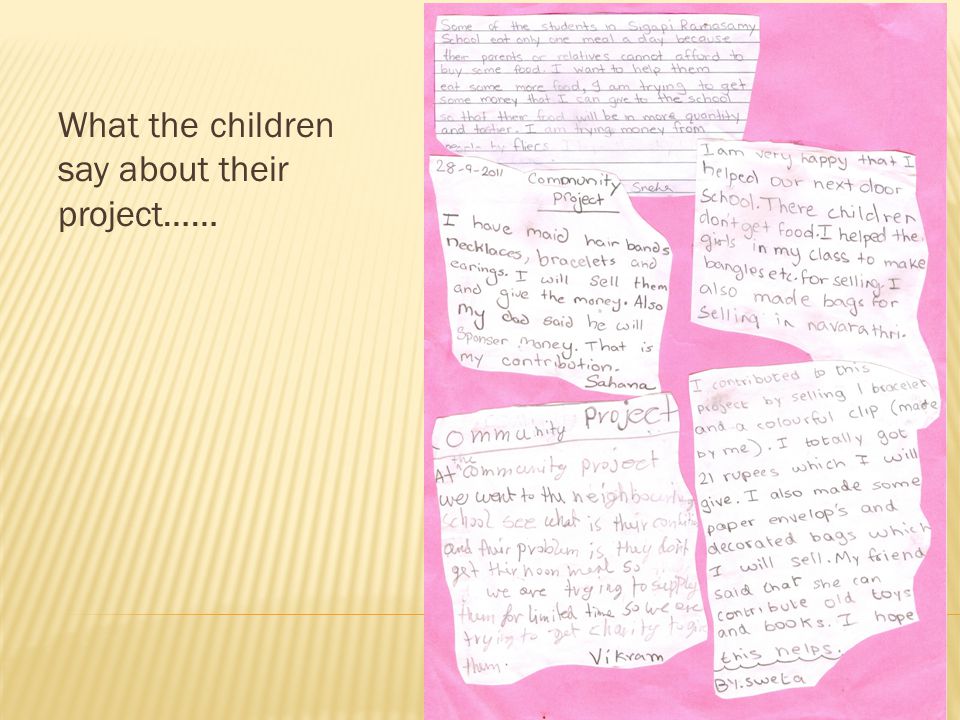 What the children
say about their
project......
Some of the students in Sigapi Ramasamy
School eat only one meal a day because
their parents or relatives cannot afford to
buy some food. I want to help them
eat some more food, I am trying to get
some money that I can give to the school
so that their food will be in more quantity
and tastier. I am trying money from
people by fliers
Sneha
28-9-2011
Community
project
I have maid hair bands
necklaces, bracelets and
earings. I will sell them
and give the money. Also
my dad said he will
sponser money. That is
my contribution.
Sahana
I am very happy that I
helped our next door
school. There children
don't get food. I helped the
girls in my class to make
bangles etc. for selling. I
also made bags for
selling in navarathri.
Community Project
At the community project
we went to the neighbouring
school see what is their condition
and their problem is they don't
get thir noon meal so
we are trying to supply
them for limited time so we are
trying to get charity to give
them.
Vikram
I contributed to this
project by selling 1 bracelet
and a colourful clip (made
by me). I totally got
21 rupees which I will
give. I also made some
paper envelop's and
decorated bags which
I will sell. My friend
said that she can
contribute old toys
and books. I hope
this helps.
BY. sweta